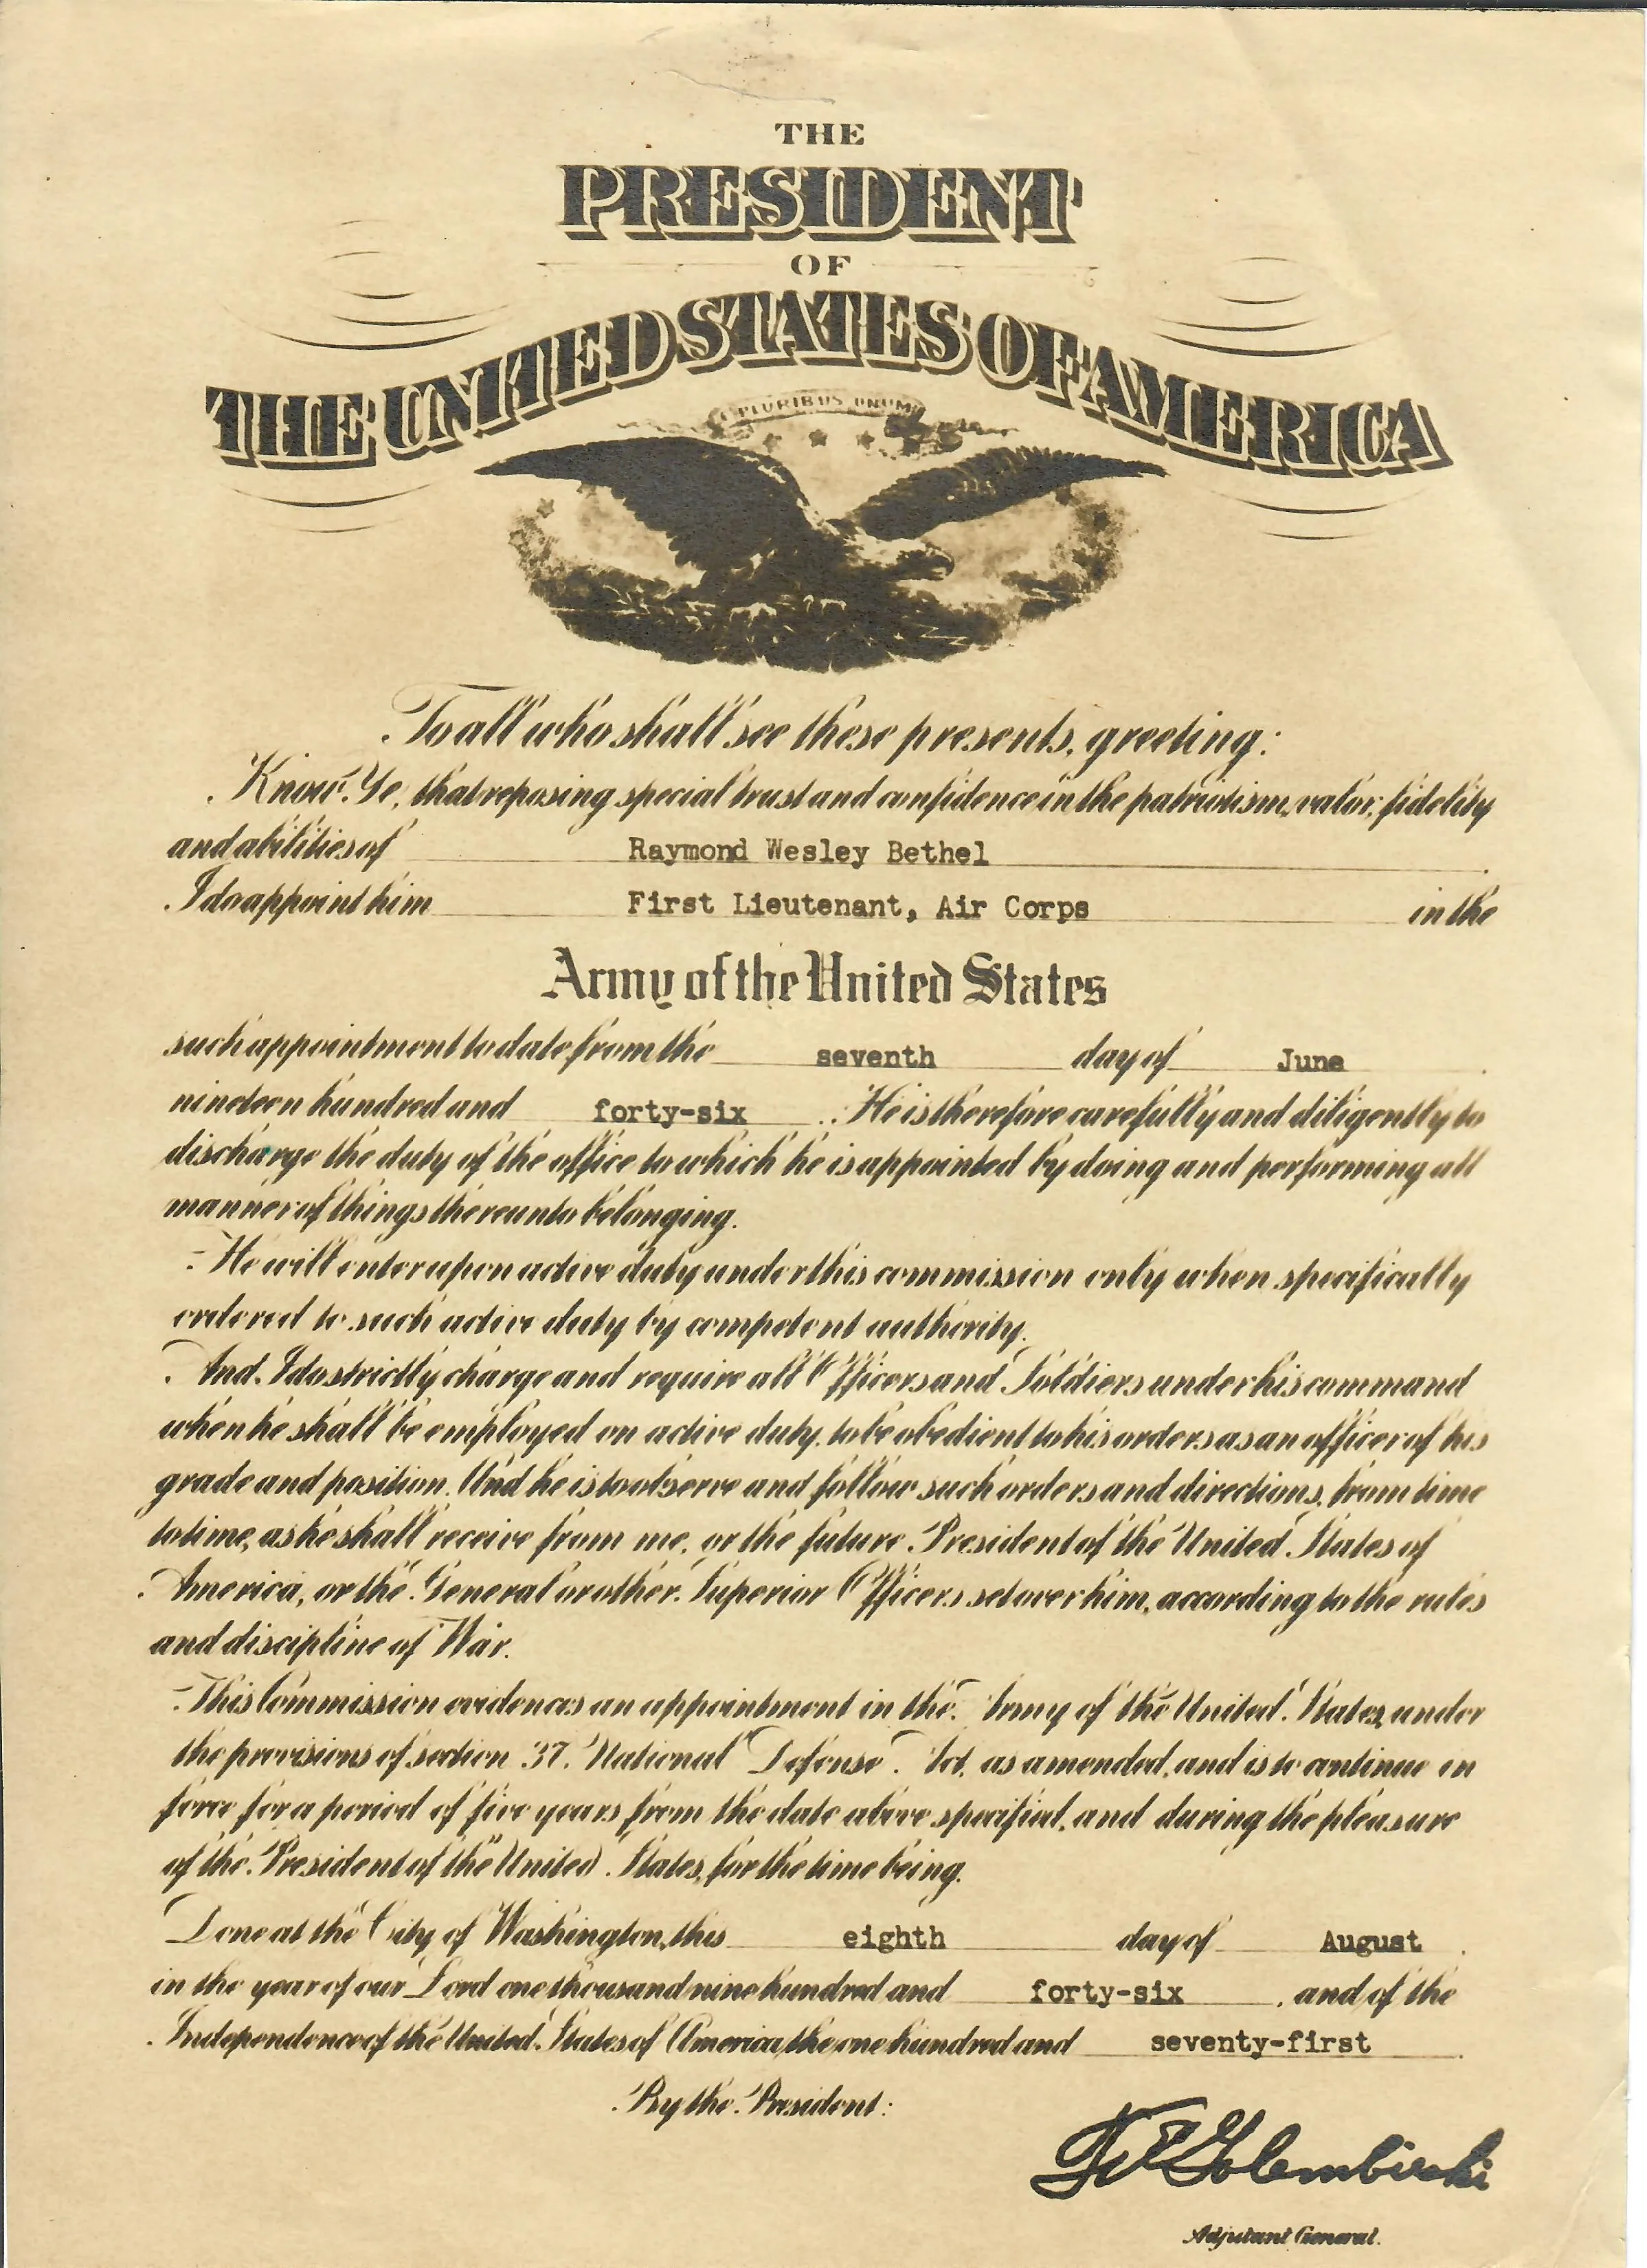 THE
PRESIDENT
OF
THE UNITED STATES OF AMERICA
E PLURIBUS UNUM
To all who shall see these presents, greeting:
Know Ye, that reposing special trust and confidence in the patriotism, valor, fidelity
and abilities of Raymond Wesley Bethel
I do appoint him First Lieutenant, Air Corps in the
Army of the United States
such appointment to date from the seventh day of June
nineteen hundred and forty-six. He is therefore carefully and diligently to
discharge the duty of the office to which he is appointed by doing and performing all
manner of things thereunto belonging.
He will enter upon active duty under this commission only when specifically
ordered to such active duty by competent authority.
And I do strictly charge and require all Officers and Soldiers under his command
when he shall be employed on active duty, to be obedient to his orders as an officer of his
grade and position. And he is to observe and follow such orders and directions, from time
to time, as he shall receive from me, or the future President of the United States of
America, or the General or other Superior Officers set over him, according to the rules
and discipline of War.
This Commission evidences an appointment in the Army of the United States, under
the provisions of section 37, National Defense Act, as amended, and is to continue in
force for a period of five years from the date above specified, and during the pleasure
of the President of the United States, for the time being.
Done at the City of Washington, this eighth day of August
in the year of our Lord one thousand nine hundred and forty-six, and of the
Independence of the United States of America, the one hundred and seventy-first
By the President:
Golembieski
Adjutant General.